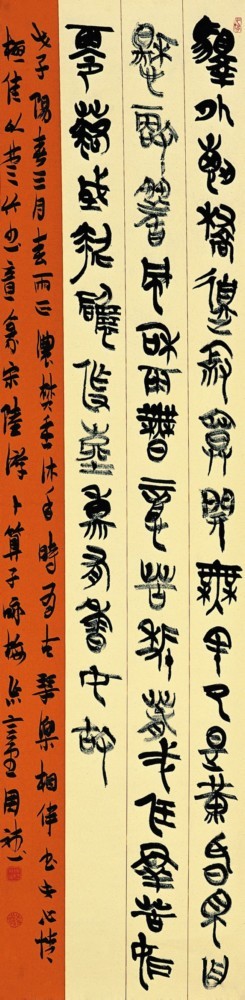 驛外斷橋邊寂寞開無主已是黃昏獨自
愁更著風和雨無意苦爭春一任群芳妒
零落成泥碾作塵只有香如故
戊子陽春三月春雨正濃焚香沐手時有古琴樂相伴書心情
極佳以楚竹書意宋陸游卜算子咏梅